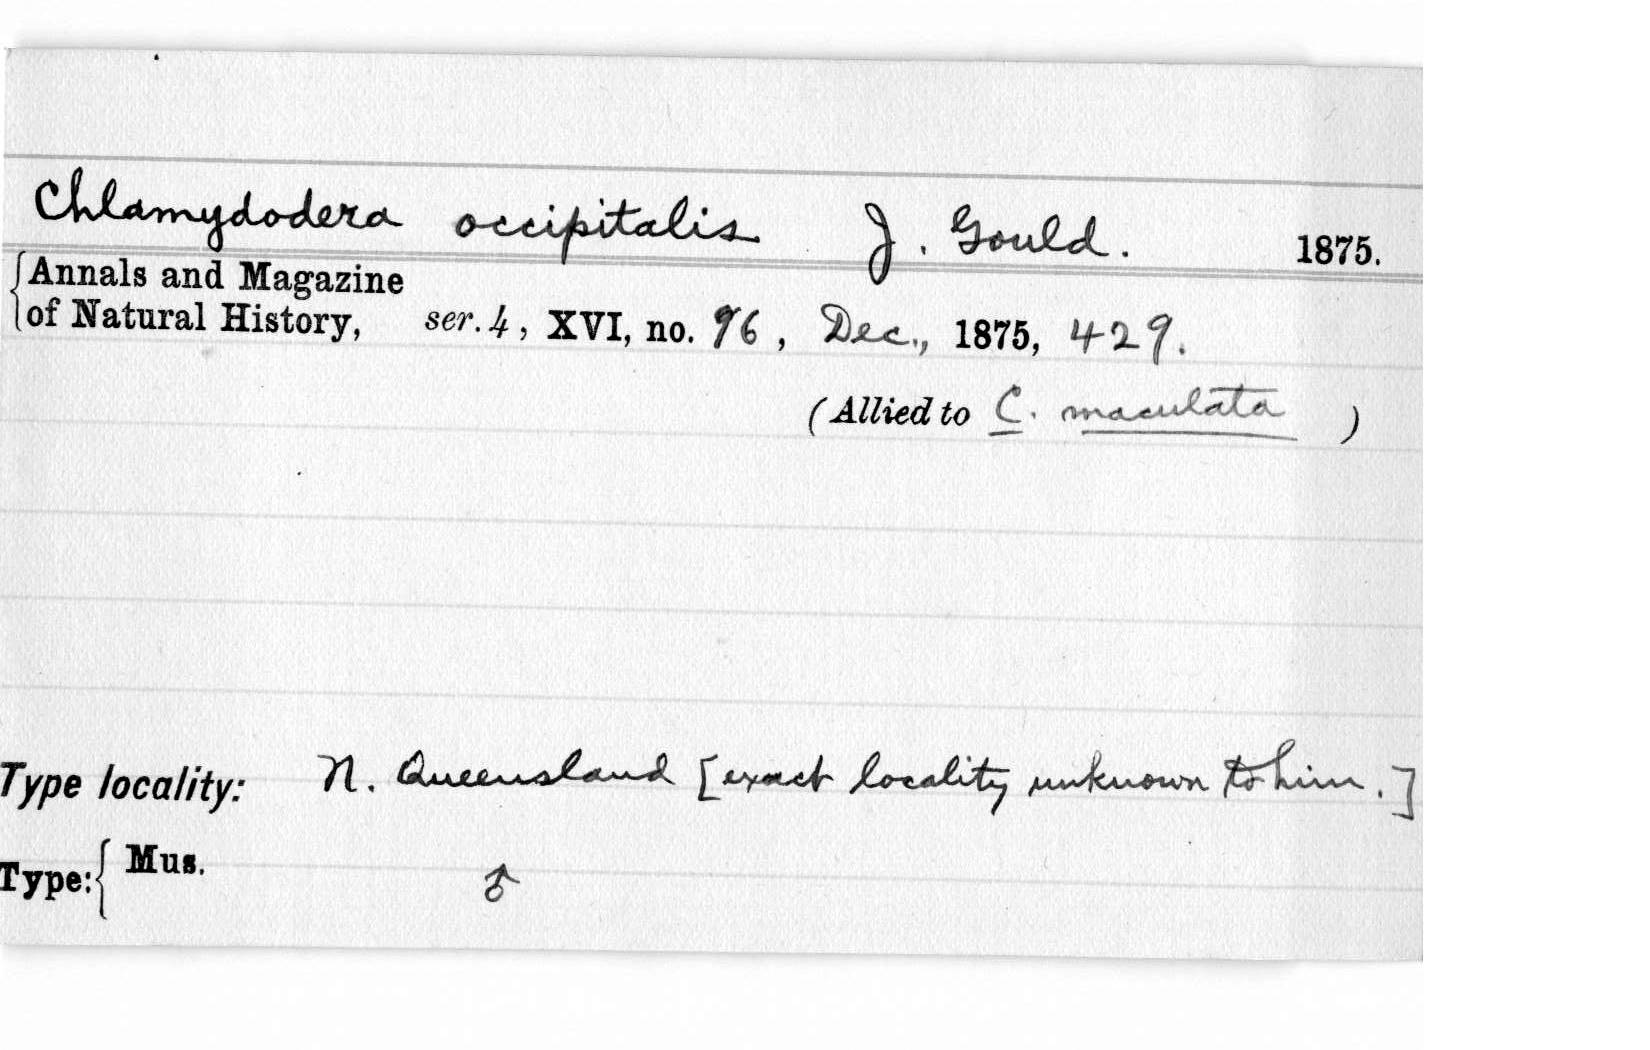 Chlamydodera occipitalis J. Gould. 1875.
Annals and Magazine
of Natural History, ser. 4, XVI, no. 96, Dec., 1875, 429.
(Allied to C. maculata )
Type locality: N. Queensland [exact locality unknown to him.]
Type: Mus. ♂